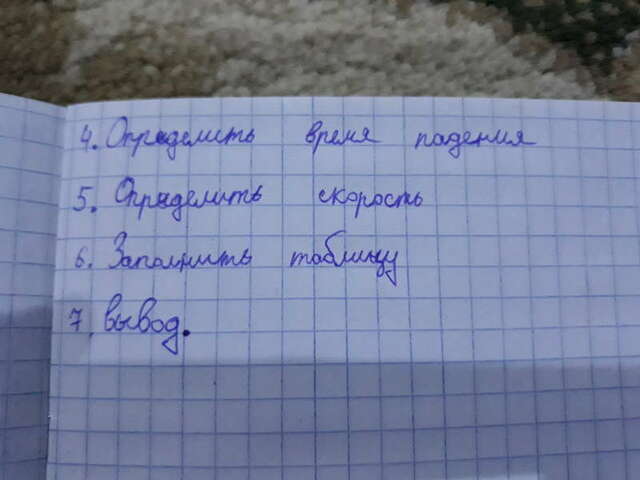 4. Определить время падения
5. Определить скорость
6. Заполнить таблицу
7. Вывод.